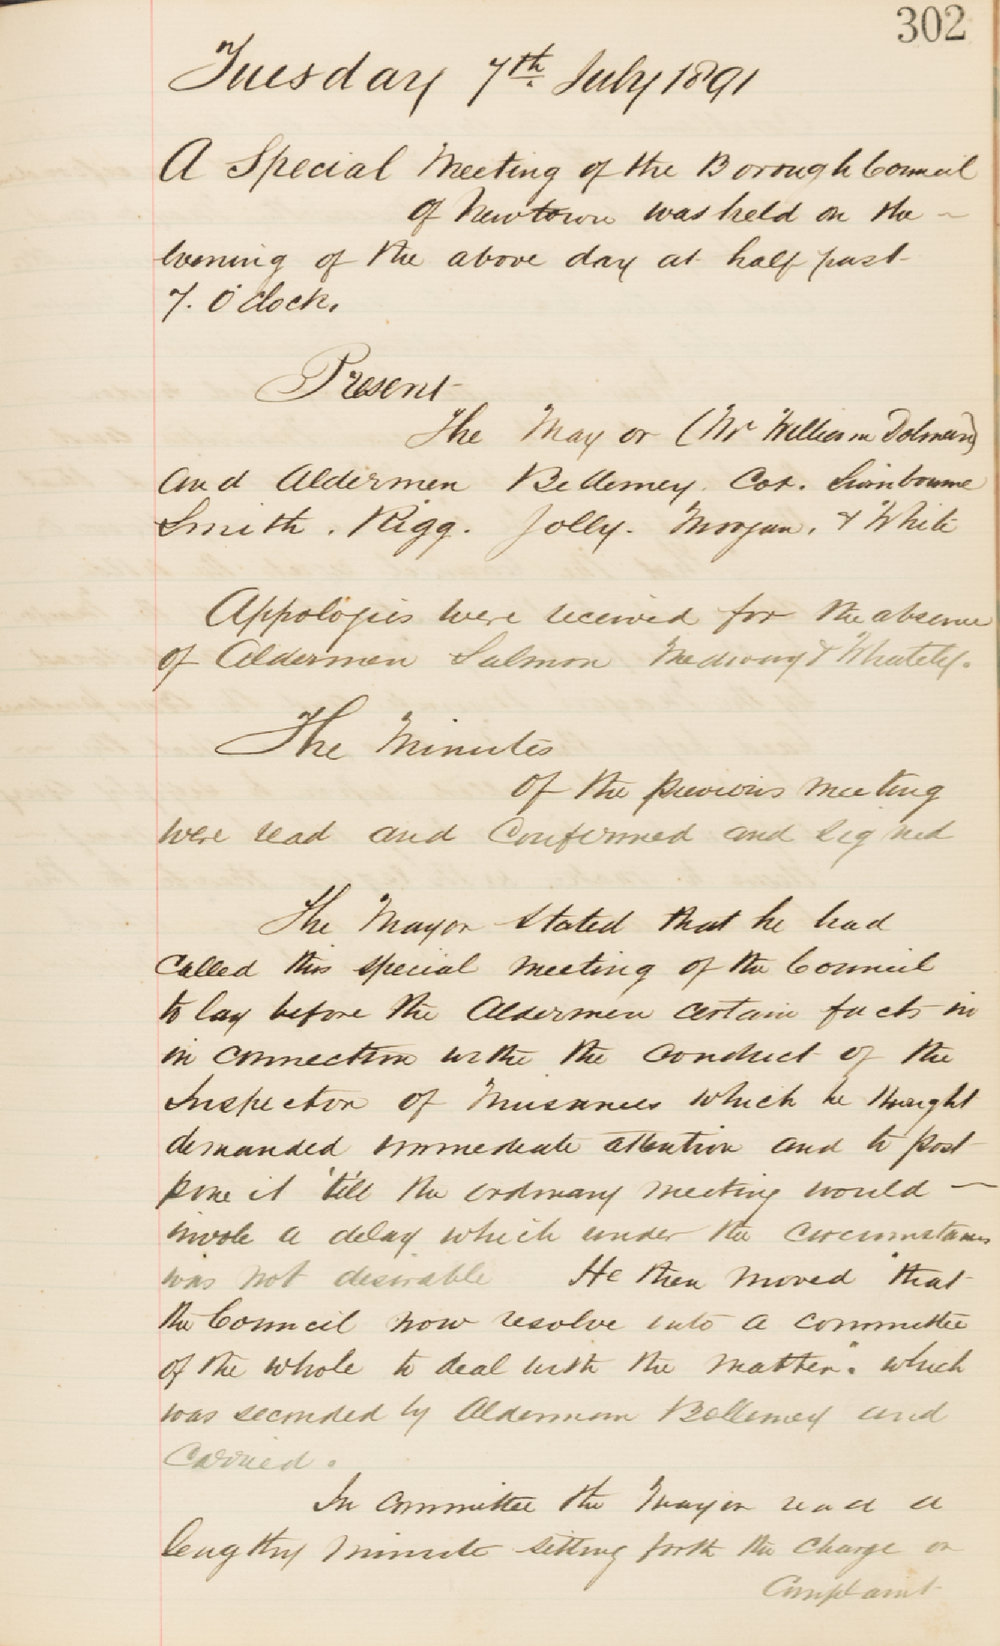 302
Tuesday 7th July 1891
A Special Meeting of the Borough Council
of Newtown was held on the
evening of the above day at half past
7. O'clock.
Present
The Mayor (Mr William Dolman)
and Aldermen Bellemey. Cox. Swinbourne
Smith. Rigg. Jolly. Morgan. & White
Appologies were received for the absence
of Aldermen Salmon Medway & Whately.
The Minutes
of the previous meeting
were read and Confirmed and signed
The Mayor stated that he had
called this special meeting of the Council
to lay before the Aldermen certain facts in
in connection with the conduct of the
Inspector of Nuisances which he thought
demanded immediate attention and to post
pone it 'till the ordinary meeting would
invole a delay which under the circumstances
was not desirable He then moved "that
the Council now resolve into a committee
of the whole to deal with the matter". which
was seconded by Alderman Bellemey and
Carried.
In committee the Mayor read a
lengthy minute setting forth the charge or
Complaint